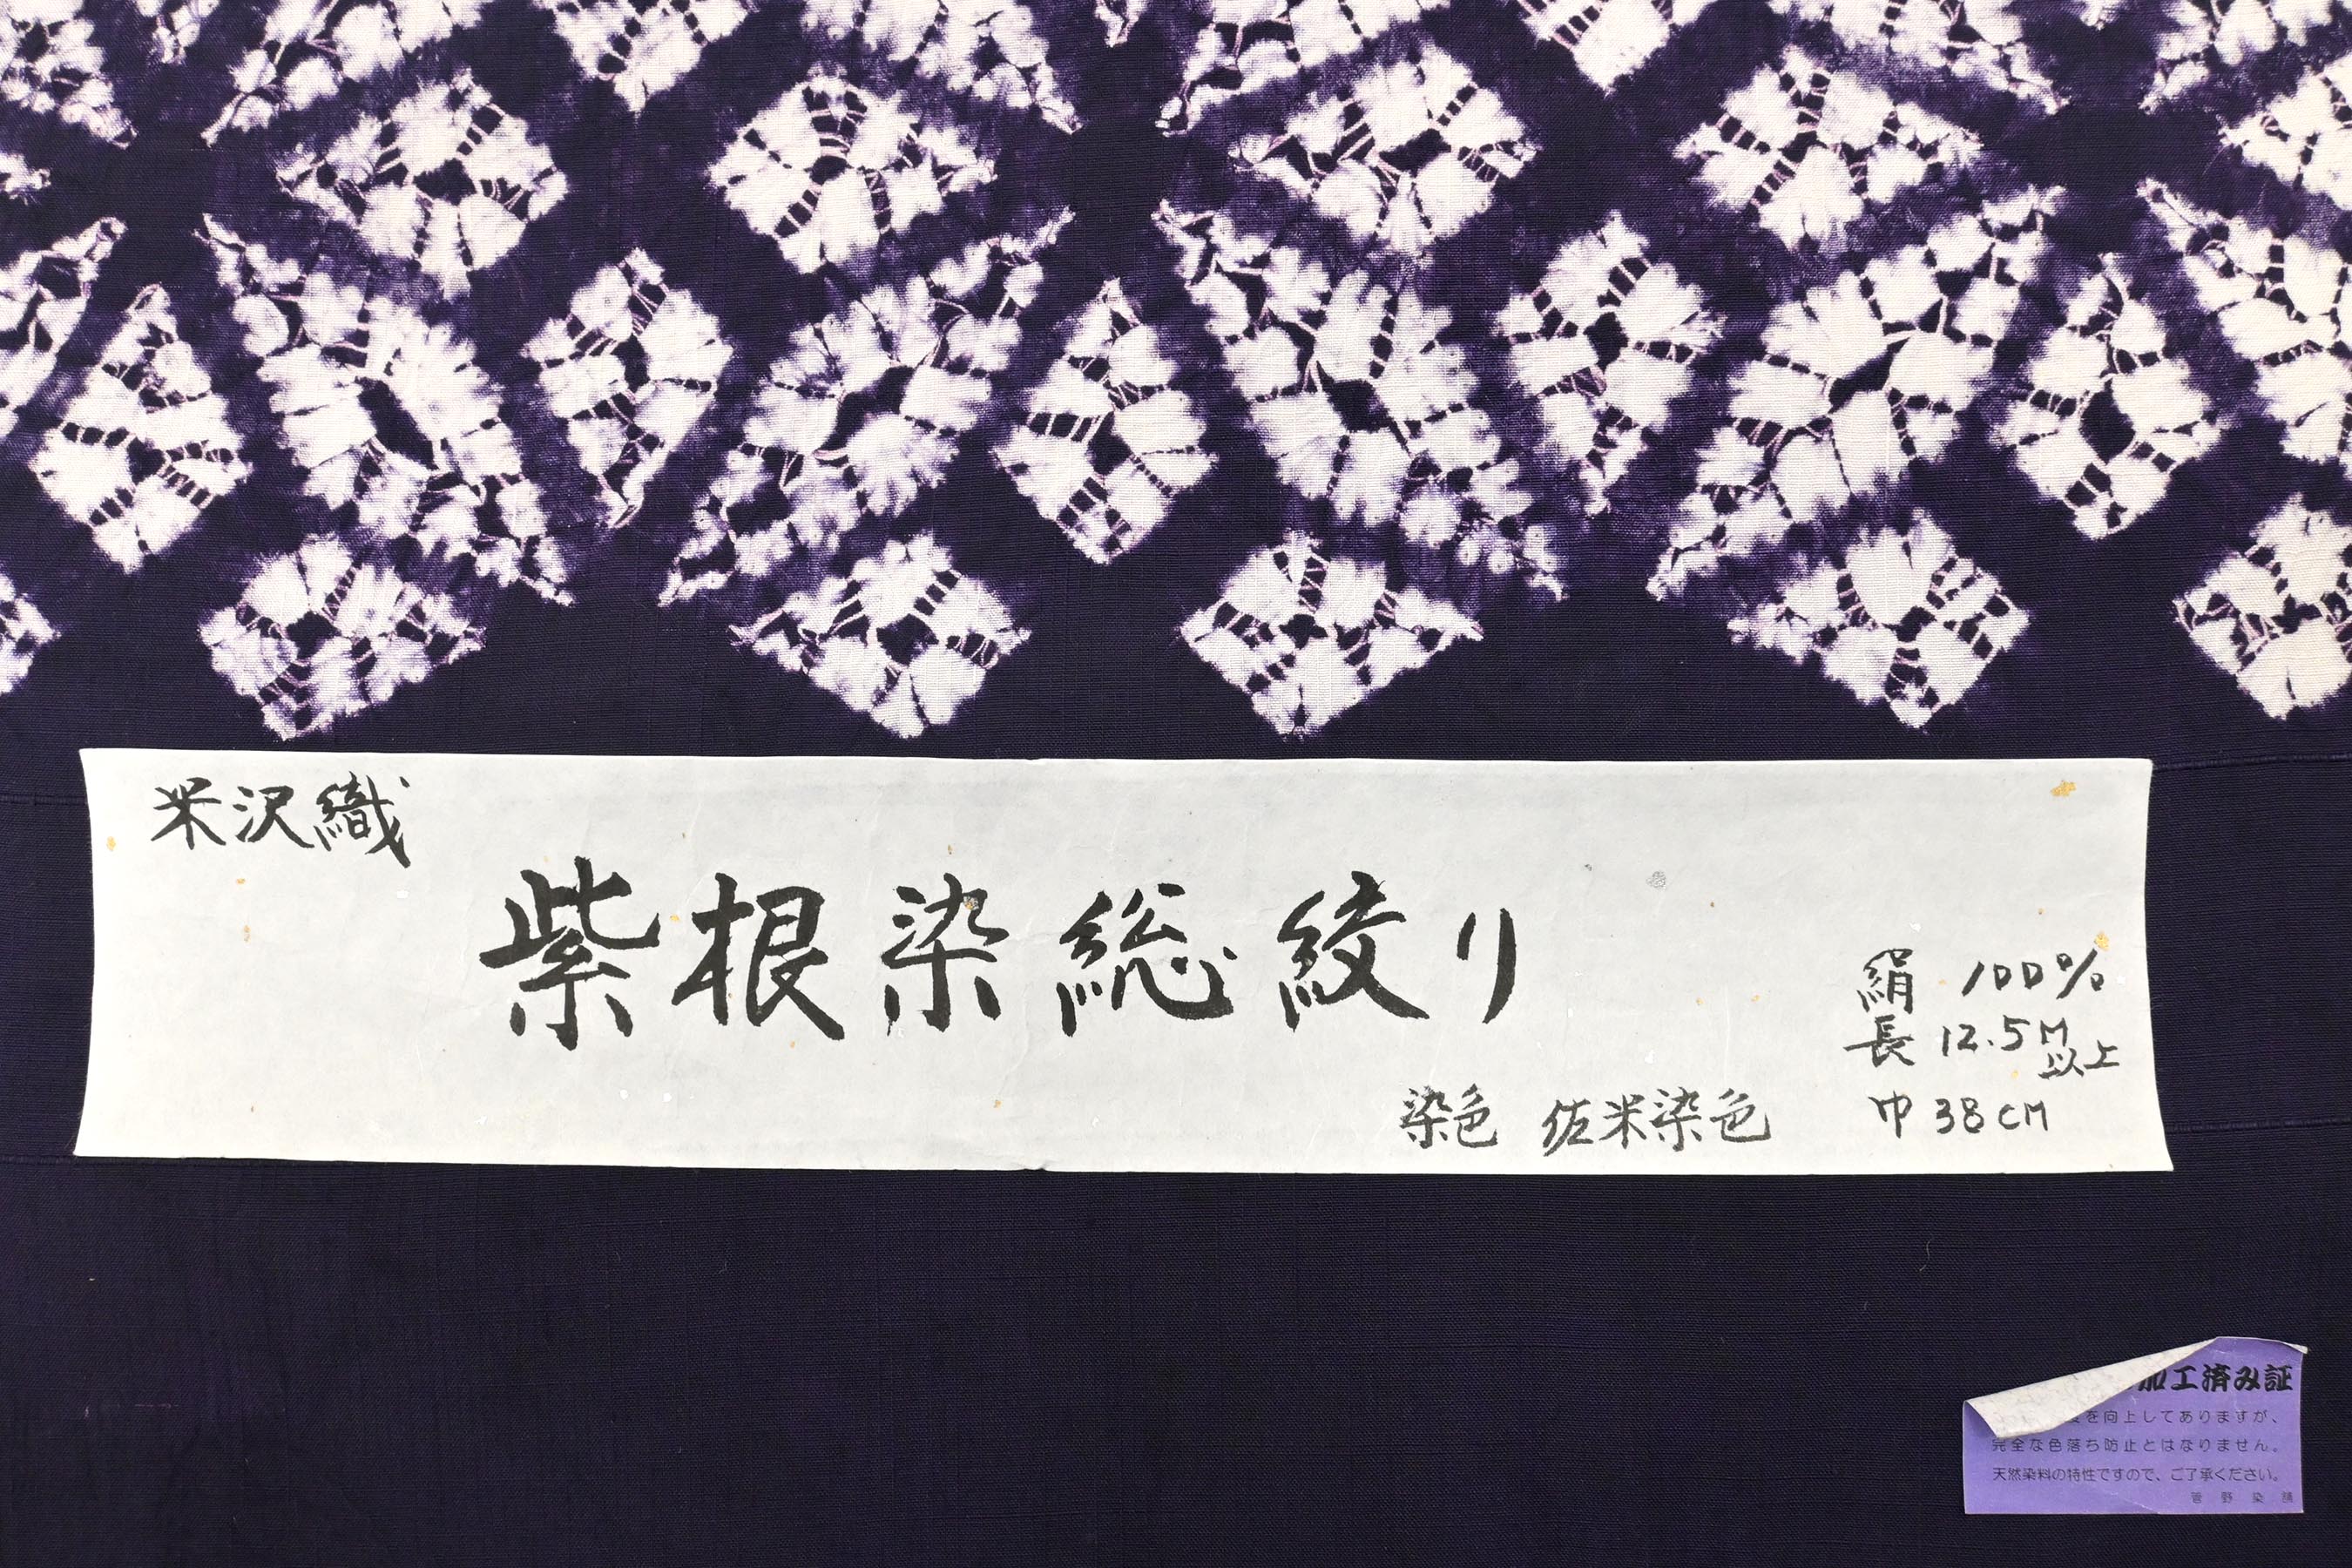 米沢織
紫根染総絞り
絹 100%
長 12.5M以上
巾 38CM
染色 佐米染色
加工済み証
を向上してありますが、
完全な色落ち防止とはなりません。
天然染料の特性ですので、ご了承ください。